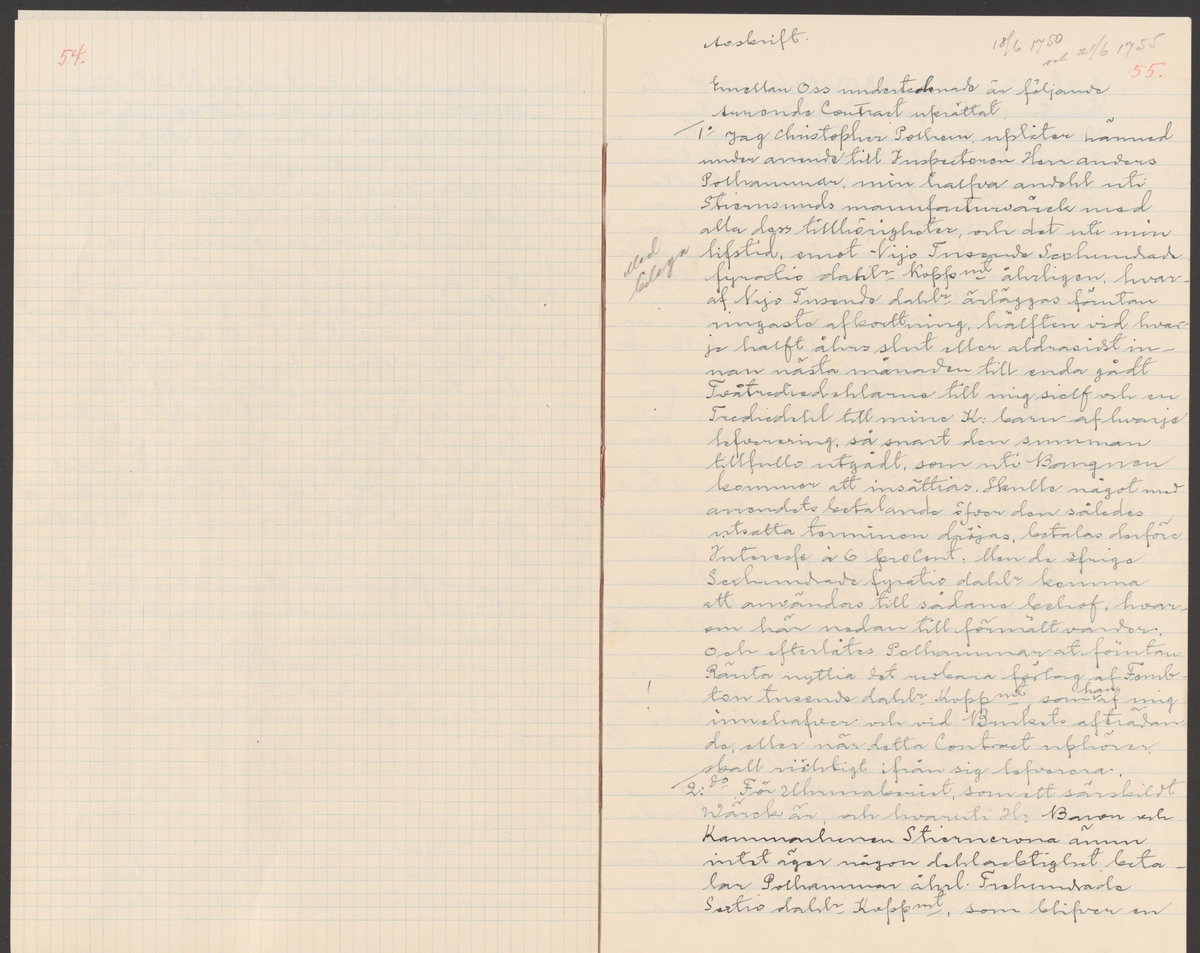 54.
Avskrift.
18/6 1750
och 21/6 1755
55.
Emellan Oss undertecknade är följande
arrende Contract uprättat.
1º Jag Christopher Polhem, uplåter härmed
under arrende till Inspectoren Herr anders
Polhammar, min halfva andehl uti
Stiernsunds manufacturwärck med
alla dess tillhörigheter, och det uti min
lifstid, emot Nijo Tusende Sexhundrade
fyratio dahlr Koppmt åhrligen, hvar-
af Nijo Tusende dahlr ärläggas förutan
ringaste afkortning, hälften vid hvar-
je halft åhrs slut eller aldrasidst in-
nan nästa månaden till enda gådt
Tvåtrediedehlarne till mig sielf och en
Trediedehl till mine K: barn af hvarje
lefverering, så snart den summan
tillfullo utgådt, som uti Banquen
kommer att insättias. Skulle något med
arrendets betalande öfver den således
utsatta terminen dröjas, betalas derföre
Interesse à 6 proCent. Men de öfrige
Sexhundrade fyratio dahlr komma
att användas till sådane behof, hvar-
om här nedan till förmält varder.
Och efterlåtes Polhammar at förutan
Ränta nyttia det redbara förlag af Femb-
ton tusende dahlr Koppmt, som han af mig
innehafver och vid Brukets afträdan
de, eller när detta Contract uphörer,
skall richtigt ifrån sig lefverera.
Med
bilaga
!
2:do För Uhrmakeriet, som ett särskildt
Wärck är, och hvaruti Hr Baron och
Kammarherren Stiernerona ännu
intet äger någon dehlacktighet, beta-
lar Polhammar åhrl. Trehundrade
Sextio dahlr Koppmt, som blifver en